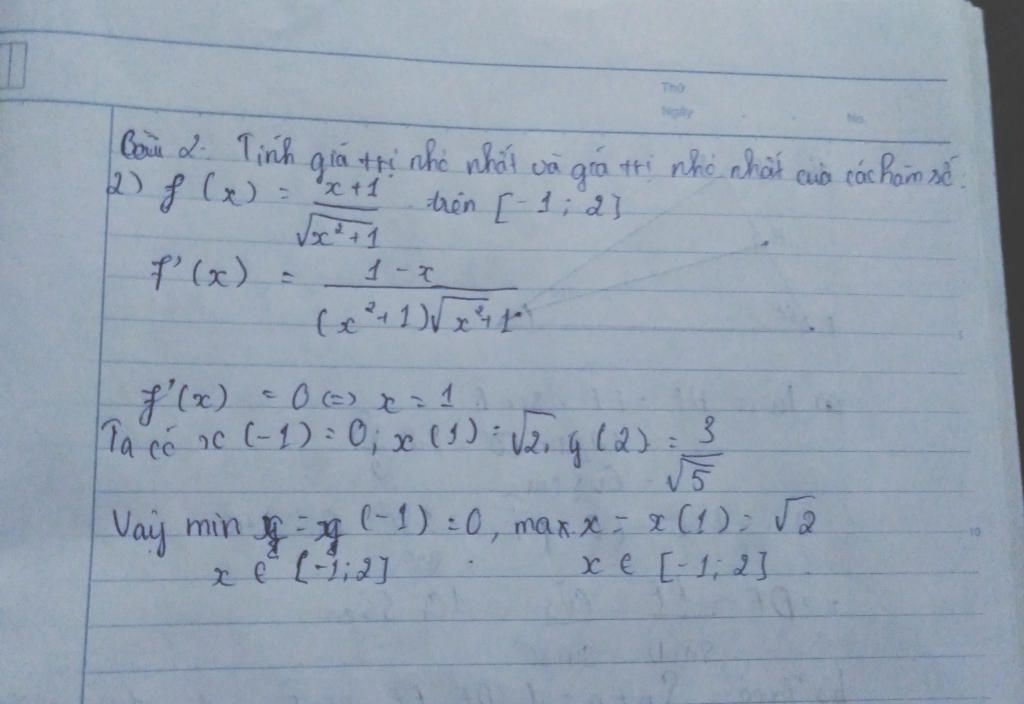 Thứ
Ngày No.
Bài 2. Tính giá trị nhỏ nhất và giá trị nhỏ nhất của các hàm số.
2) f(x) = \frac{x+1}{\sqrt{x^2+1}} trên [-1; 2]
f'(x) = \frac{1-x}{(x^2+1)\sqrt{x^2+1}}
f'(x) = 0 <=> x = 1
Ta có x(-1) = 0; x(1) = \sqrt{2}, y(2) = \frac{3}{\sqrt{5}}
Vậy min y = y(-1) = 0, max x = x(1) = \sqrt{2}
x ∈ [-1; 2] x ∈ [-1; 2]
5
10